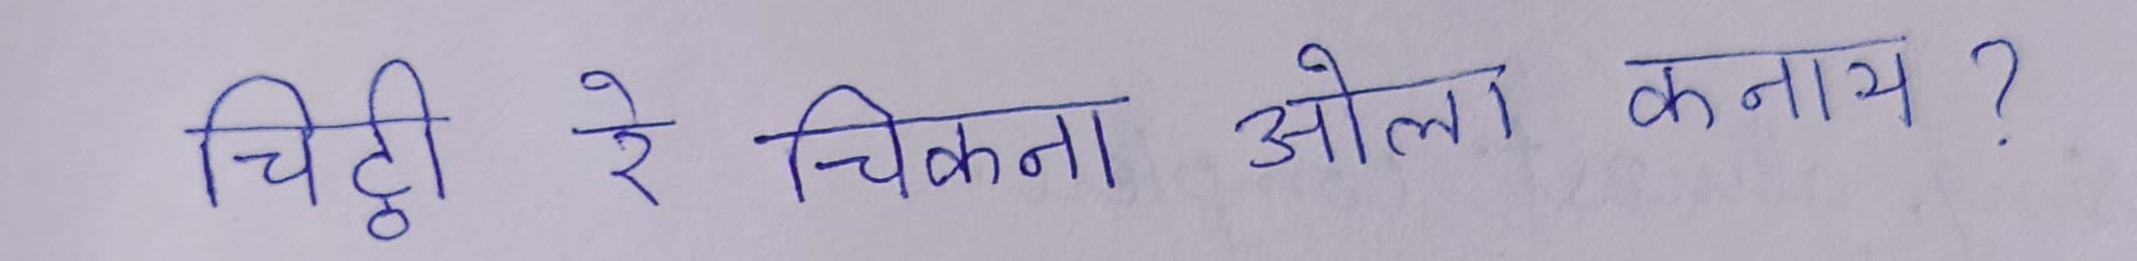 चिट्ठी रे चिकना ओला कनाय ?